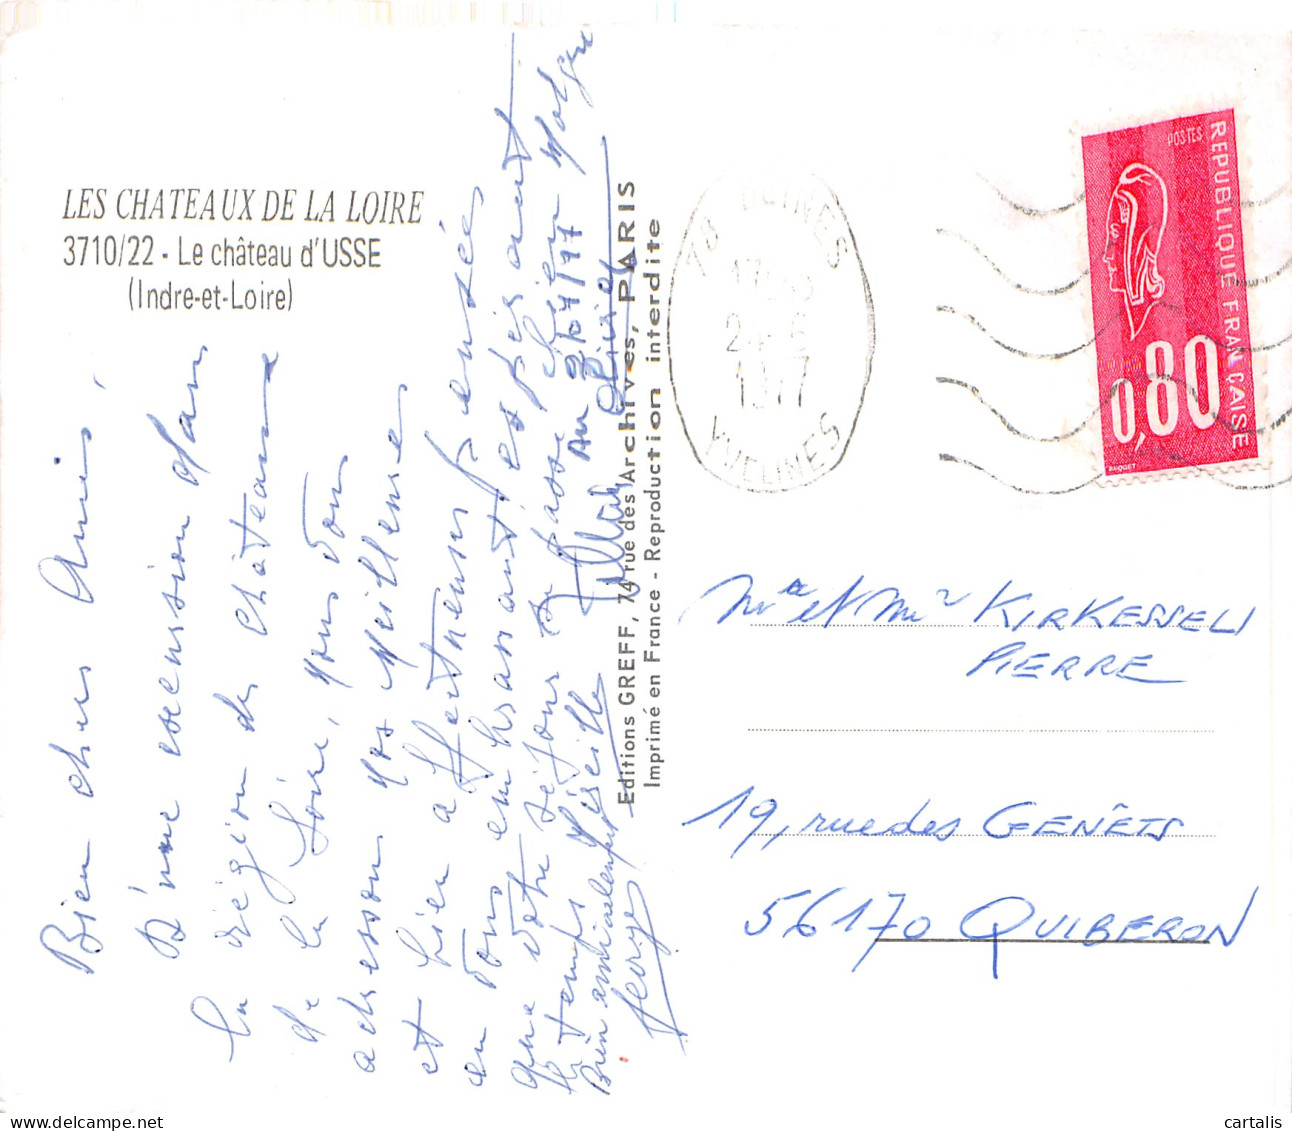 LES CHATEAUX DE LA LOIRE
3710/22 - Le château d'USSE
(Indre-et-Loire)
Bien chers Amis,
D'une excursion dans
la région des châteaux
de la Loire, nous vous
adressons nos meilleures
et bien affectueuses pensées
en vous embrassant et espérant
que votre séjour se passe bien malgré
le temps
Bien amicalement
Serge
Mireille
Editions GREFF, 74 rue des Archives, PARIS
Imprimé en France - Reproduction interdite
78
YVELINES
24-5
1977
POSTES
REPUBLIQUE FRANÇAISE
0,80
BEQUET
Me et Mr KIRKESSELI
PIERRE
19, rue des GENÊTS
56170 QUIBERON
cartalis